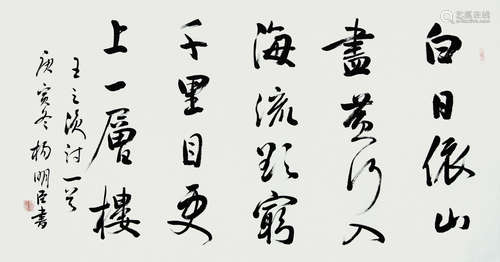 白日依山
盡黄河入
海流欲窮
千里目更
上一層樓
王之渙詩一首
庚寅冬楊明臣書